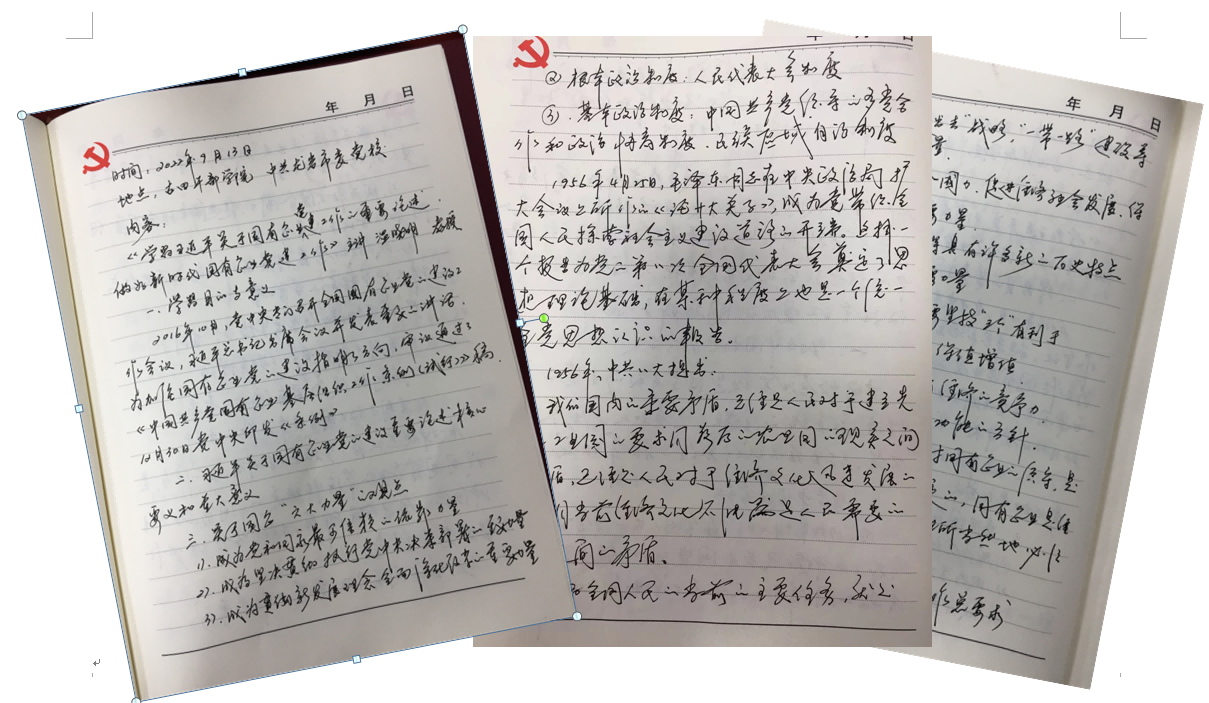 年 月 日
时间：2022年9月13日
地点：古田干部学院 中共龙岩市委党校
内容：
《学习习近平关于国有企业党建工作的重要论述，
做好新时代国有企业党建工作》 主讲 教授
一、学习目的与意义
2016年10月，党中央召开全国国有企业党的建设工
作会议，习近平总书记出席会议并发表重要讲话，
为加强国有企业党的建设指明了方向，审议通过了
《中国共产党国有企业基层组织工作条例（试行）》稿，
12月30日党中央印发《条例》
二、习近平关于国有企业党的建设重要论述核心
要义和重大意义
三、关于国企“六大力量”的观点
1）、成为党和国家最可信赖的依靠力量
2）、成为坚决贯彻执行党中央决策部署的重要力量
3）、成为贯彻新发展理念全面深化改革的重要力量
年 月 日
②根本政治制度：人民代表大会制度
③、基本政治制度：中国共产党领导的多党合
作和政治协商制度、民族区域自治制度
1956年4月25日，毛泽东同志在中央政治局扩
大会议上所作的《论十大关系》，成为党带领全
国人民探索社会主义建设道路的开端。这样一
个报告为党的第八次全国代表大会奠定了思
想理论基础，在某种程度上也是一个统一
全党思想认识的报告。
1956年，中共八大提出：
我们国内的主要矛盾，已经是人民对于建立先
工业国的要求同落后的农业国的现实之间
盾，已经是人民对于经济文化迅速发展的
同当前经济文化不能满足人民需要的
间的矛盾。
全国人民的当前的主要任务，就是
年 月 日
出去”战略，“一带一路”建设等
量
国力，促进经济社会发展，保
力量
具有许多新的历史特点
力量
要坚持“三个”有利于
保值增值
经济的竞争力
功能的方针
对国有企业的领导，是
的，国有企业是
所当然地，必须
作总要求